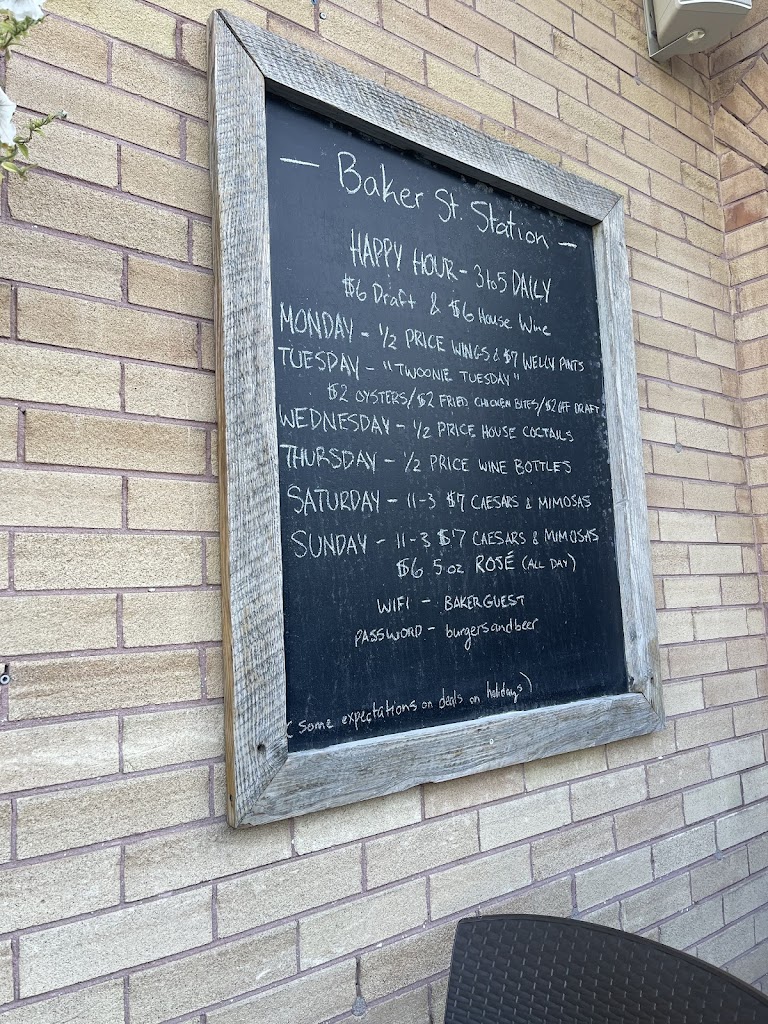 — Baker St. Station —
HAPPY HOUR - 3 to 5 DAILY
$6 Draft & $6 House Wine
MONDAY - 1/2 PRICE WINGS & $7 WELLY PINTS
TUESDAY - "TWOONIE TUESDAY"
$2 OYSTERS/$2 FRIED CHICKEN BITES/$2 OFF DRAFT
WEDNESDAY - 1/2 PRICE HOUSE COCTAILS
THURSDAY - 1/2 PRICE WINE BOTTLES
SATURDAY - 11-3 $7 CAESARS & MIMOSAS
SUNDAY - 11-3 $7 CAESARS & MIMOSAS
$6 5oz ROSÉ (ALL DAY)
WIFI - BAKERGUEST
PASSWORD - burgersandbeer
(some expectations on deals on holidays)